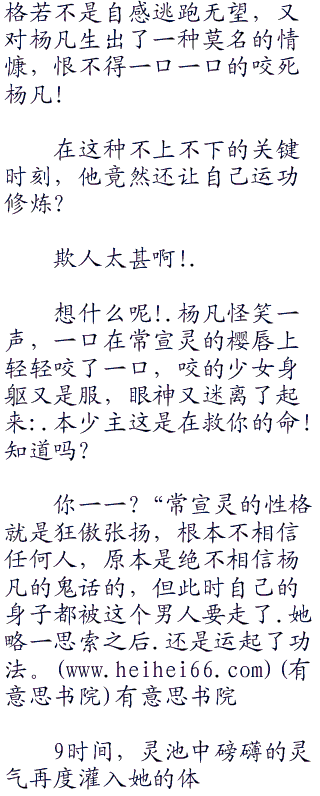 格若不是自感逃跑无望，又
对杨凡生出了一种莫名的情
慷，恨不得一口一口的咬死
杨凡！
在这种不上不下的关键
时刻，他竟然还让自己运功
修炼？
欺人太甚啊！.
想什么呢！.杨凡怪笑一
声，一口在常宣灵的樱唇上
轻轻咬了一口，咬的少女身
躯又是服，眼神又迷离了起
来:.本少主这是在救你的命！
知道吗？
你一一？“常宣灵的性格
就是狂傲张扬，根本不相信
任何人，原本是绝不相信杨
凡的鬼话的，但此时自己的
身子都被这个男人要走了.她
略一思索之后.还是运起了功
法。(www.heihei66.com)(有
意思书院)有意思书院
9时间，灵池中磅礴的灵
气再度灌入她的体